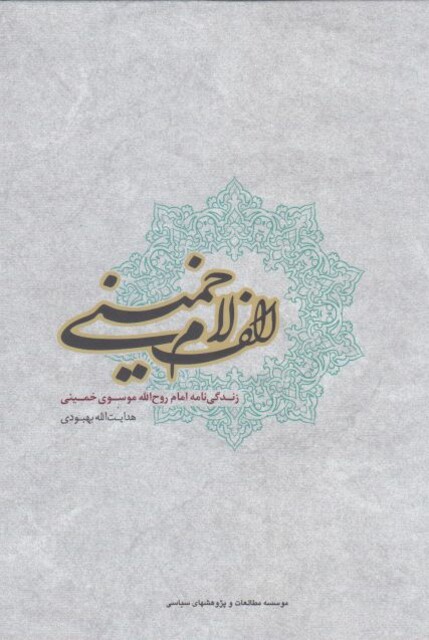 الف لام خمینی
زنـدگی‌نامه امام روح‌الله موسـوی خمـینی
هدایـت‌الله بهبـودی
موسسه مطالعات و پژوهشهای سیاسی